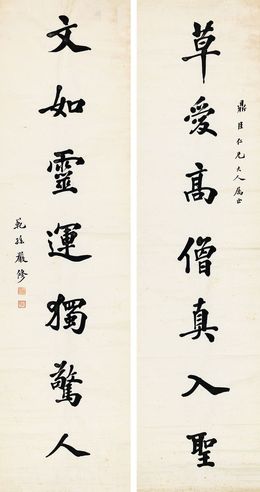 鼎臣仁兄大人属正
草爱高僧真入聖
文如靈運獨驚人
範孫嚴修